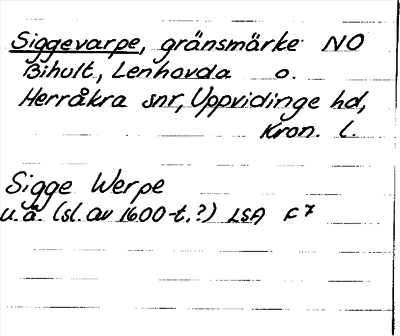 Siggevarpe, gränsmärke NO
Bihult, Lenhovda o.
Herråkra snr, Uppvidinge hd,
Kron. l.
Sigge Werpe
u.å. (sl. av 1600-t.?) LSA F7